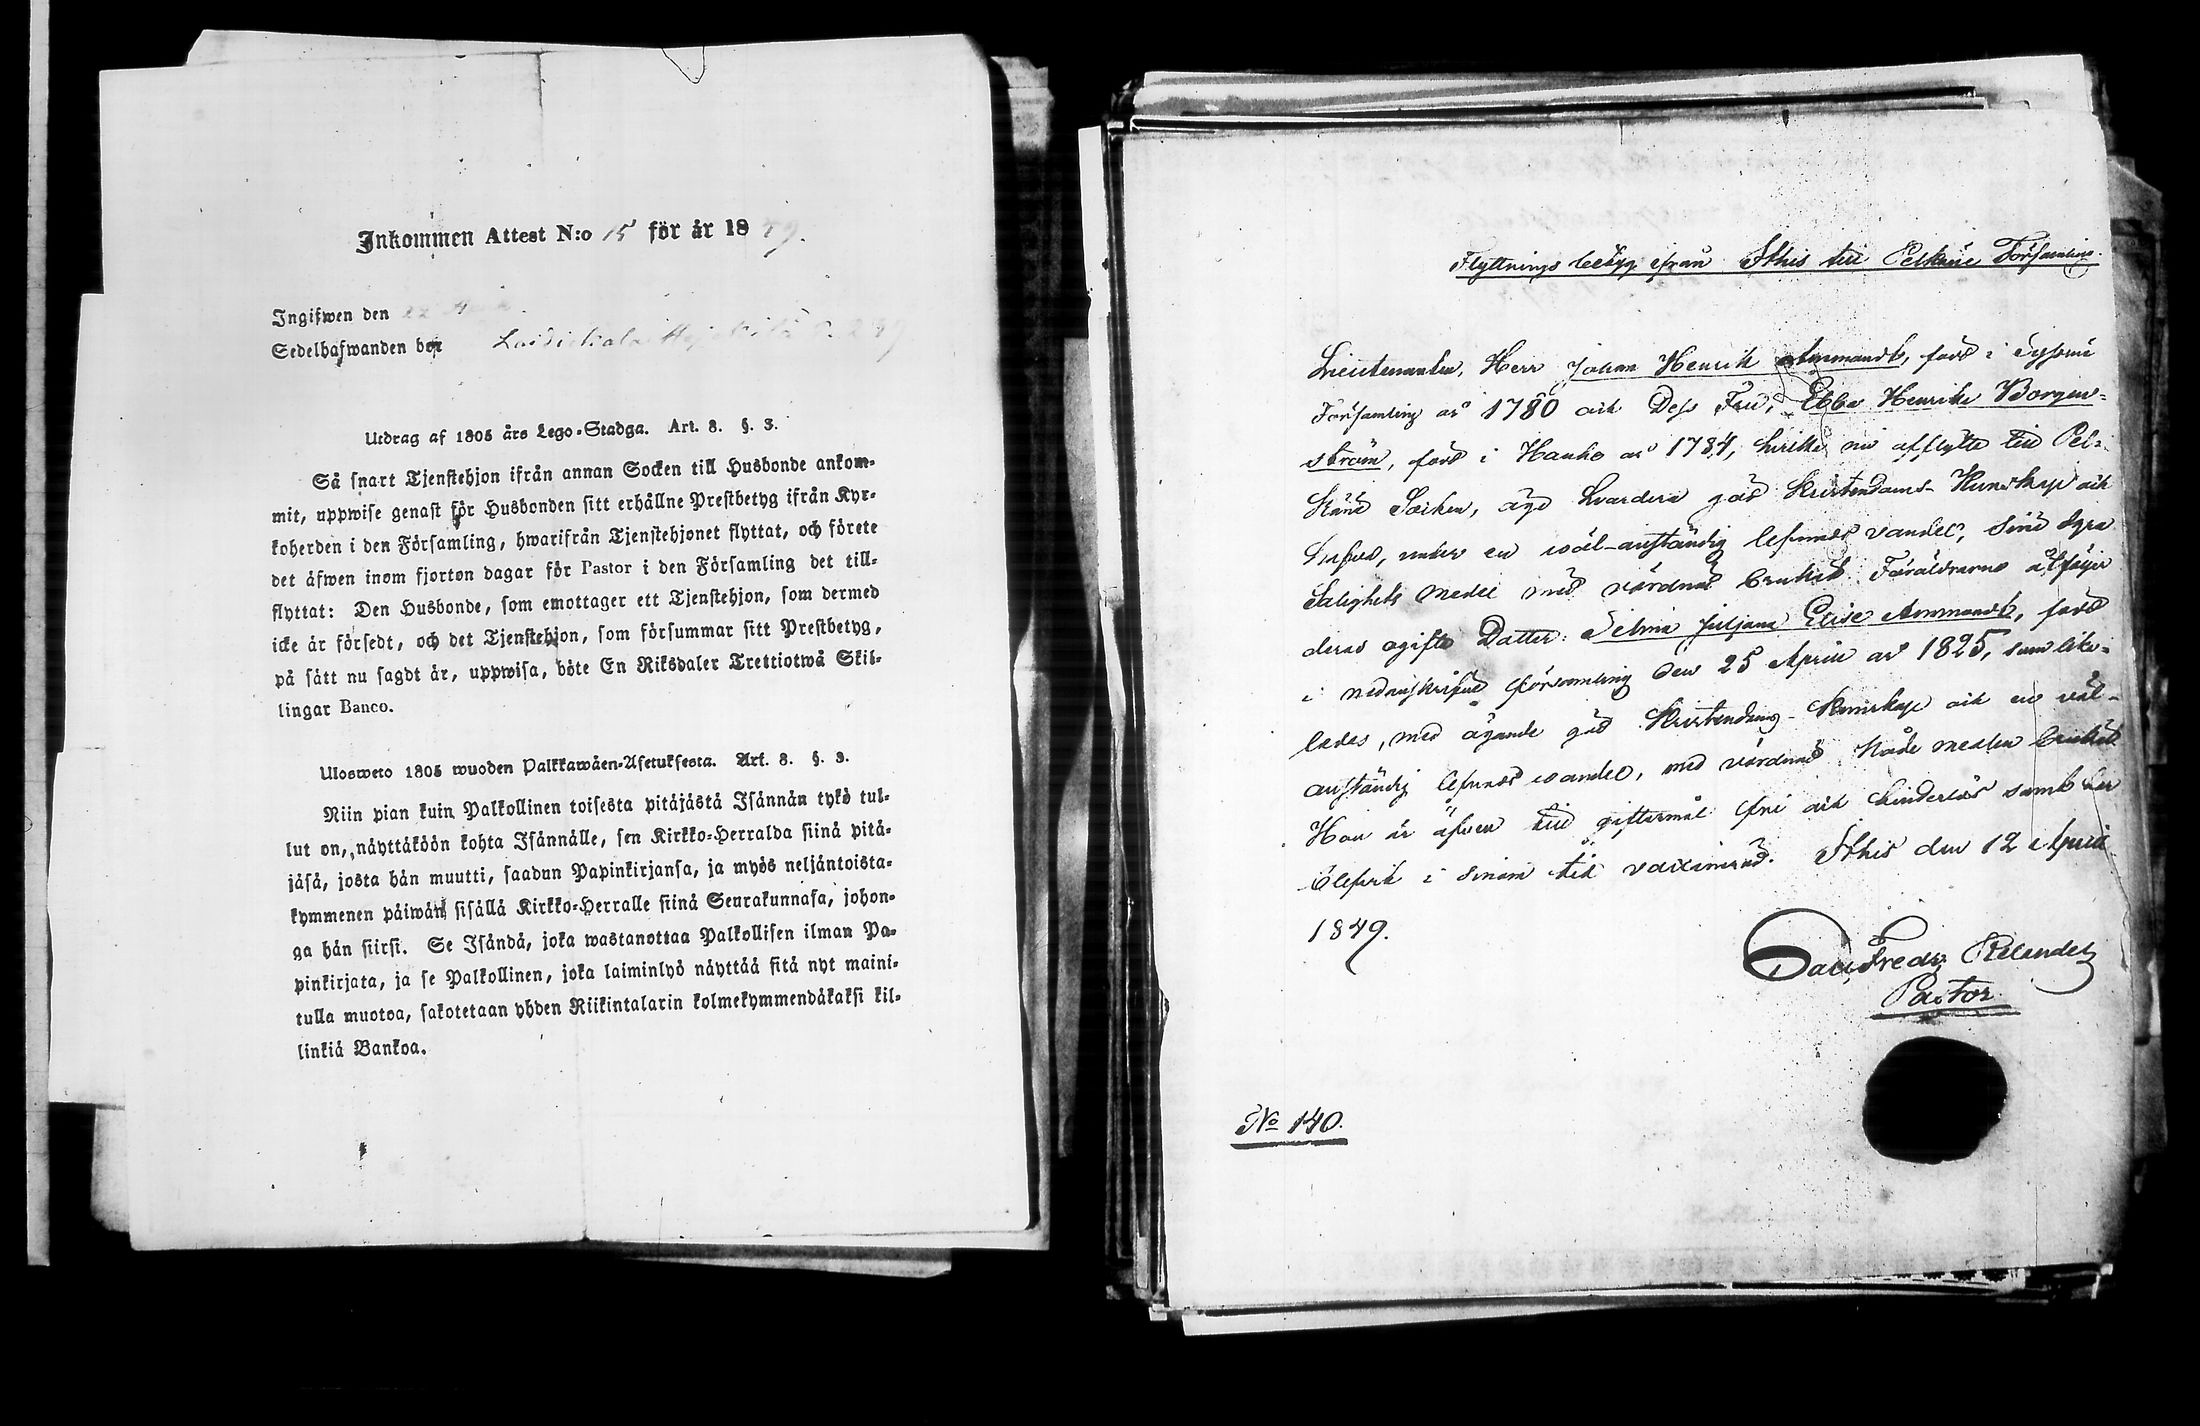 Inkommen Attest N:o 15 för år 1849.
Ingifwen den 22 April
Sedelhafwanden bor Laidickala
Utdrag af 1805 års Lego-Stadga. Art. 8. §. 3.
Så snart Tjenstehjon ifrån annan Socken till Husbonde ankom-
mit, uppwise genast för Husbonden sitt erhållne Prestbetyg ifrån Kyr-
koherden i den Församling, hwarifrån Tjenstehjonet flyttat, och förete
det äfwen inom fjorton dagar för Pastor i den Församling det till-
flyttat: Den Husbonde, som emottager ett Tjenstehjon, som dermed
icke är försedt, och det Tjenstehjon, som försummar sitt Prestbetyg,
på sätt nu sagdt är, uppwisa, böte En Riksdaler Trettiotwå Skil-
lingar Banco.
Ulosweto 1805 wuoden Palkkawäen-Asetuksesta. Art. 8. §. 3.
Niin pian kuin Palkollinen toisesta pitäjästä Isännän tykö tul-
lut on, näyttäköön kohta Isännälle, sen Kirkko-Herralda siinä pitä-
jäsä, josta hän muutti, saadun Papinkirjansa, ja myös neljäntoista-
kymmenen päiwän sisällä Kirkko-Herralle siinä Seurakunnasa, johon-
ga hän siirsi. Se Isändä, joka wastanottaa Palkollisen ilman Pa-
pinkirjata, ja se Palkollinen, joka laiminlyö näyttää sitä nyt maini-
tulla muotoa, sakotetaan yhden Riikintalarin kolmekymmendäkaksi kil-
linkiä Bankoa.
Flyttnings betyg ifrån Sthis till Pelkäne Församling.
Lieutenanten, Herr Johan Henrik Ammondt, född i Sysmä
Församling år 1780 och Dess Fru, Ebba Henrika Borgen-
ström, född i Hauho år 1784, hvilka nu afflytta till Pel-
käne Socken, äga hvardera god Kristendoms-Kunskap och
hafva, under en wäl-anständig lefnads vandel, sina dyra
Salighets medel med vördnad brukat. Föräldrarne åtföljer
deras ogifta Dotter: Selma Juljana Elise Ammondt, född
i nedanskrifne församling den 25 April år 1825, som like-
ledes, med ägande god Kristendoms-Kunskap och en väl-
anständig lefnads wandel, med vördnad Nåde medlen brukat.
Hon är äfven till giftermål fri och hinderlös samt har
blifvit i sinom tid vaccinerad. Sthis den 12 April
1849.
Dan. Fredr. Relander
Pastor.
No 140.